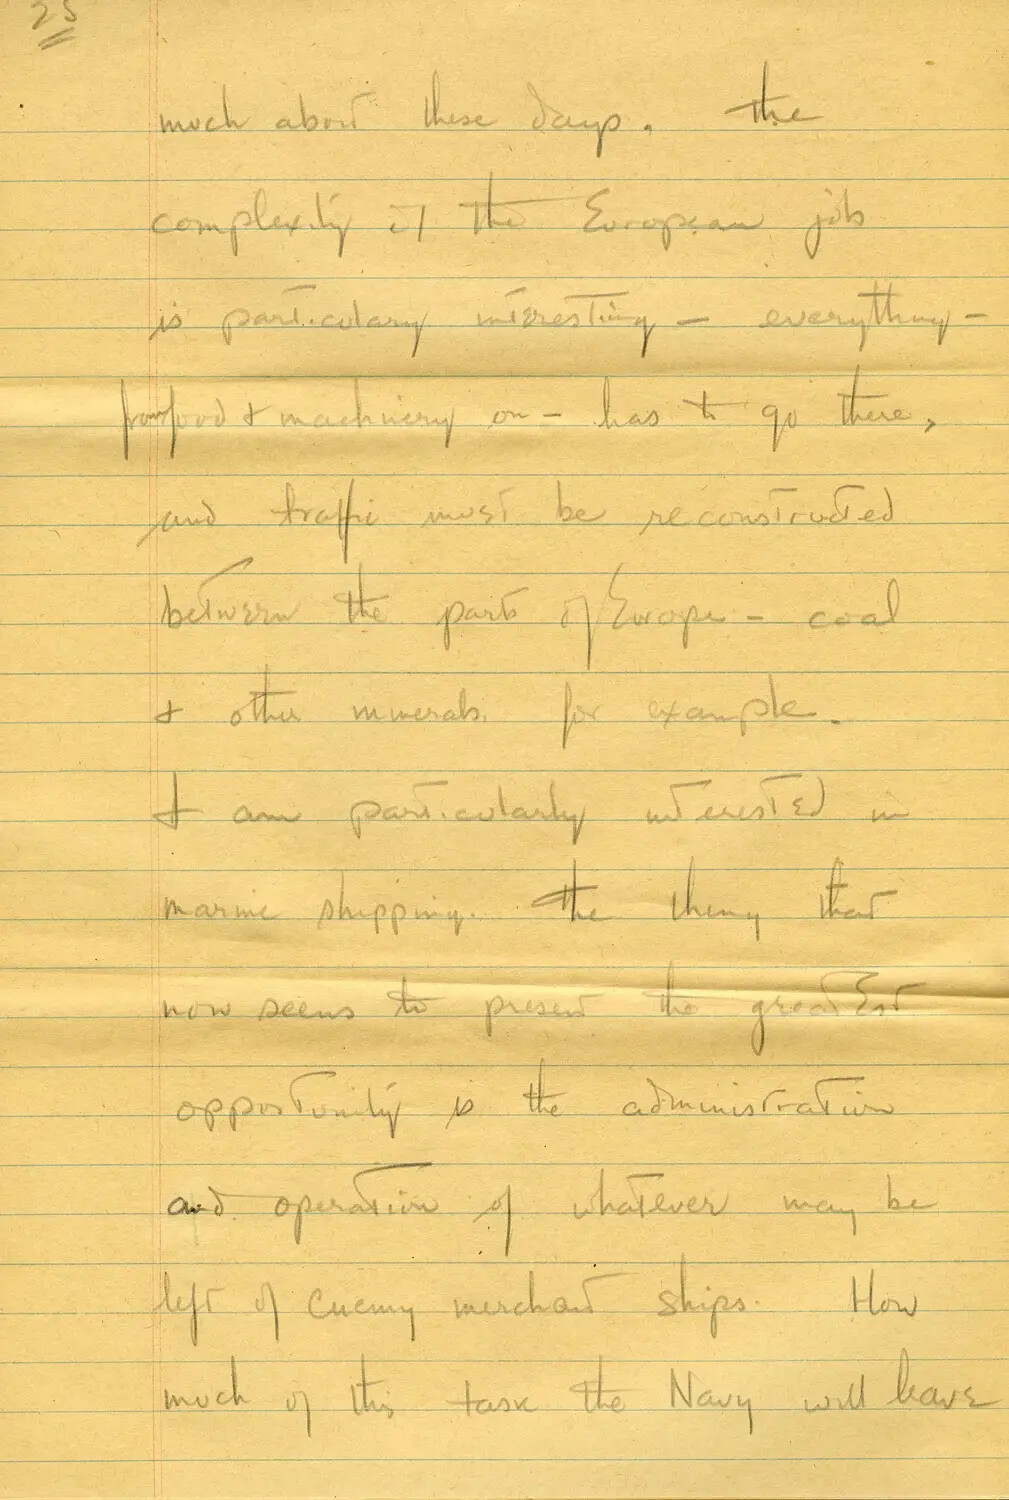 25
much about these days. The
complexity of the European job
is particulary interesting – everything –
from food & machinery on – has to go there,
and traffic must be reconstructed
between the parts of Europe – coal
& other minerals. for example.
I am particularly interested in
marine shipping. The thing that
now seems to present the greatest
opportunity is the administration
and operation of whatever may be
left of enemy merchant ships. How
much of this task the Navy will leave